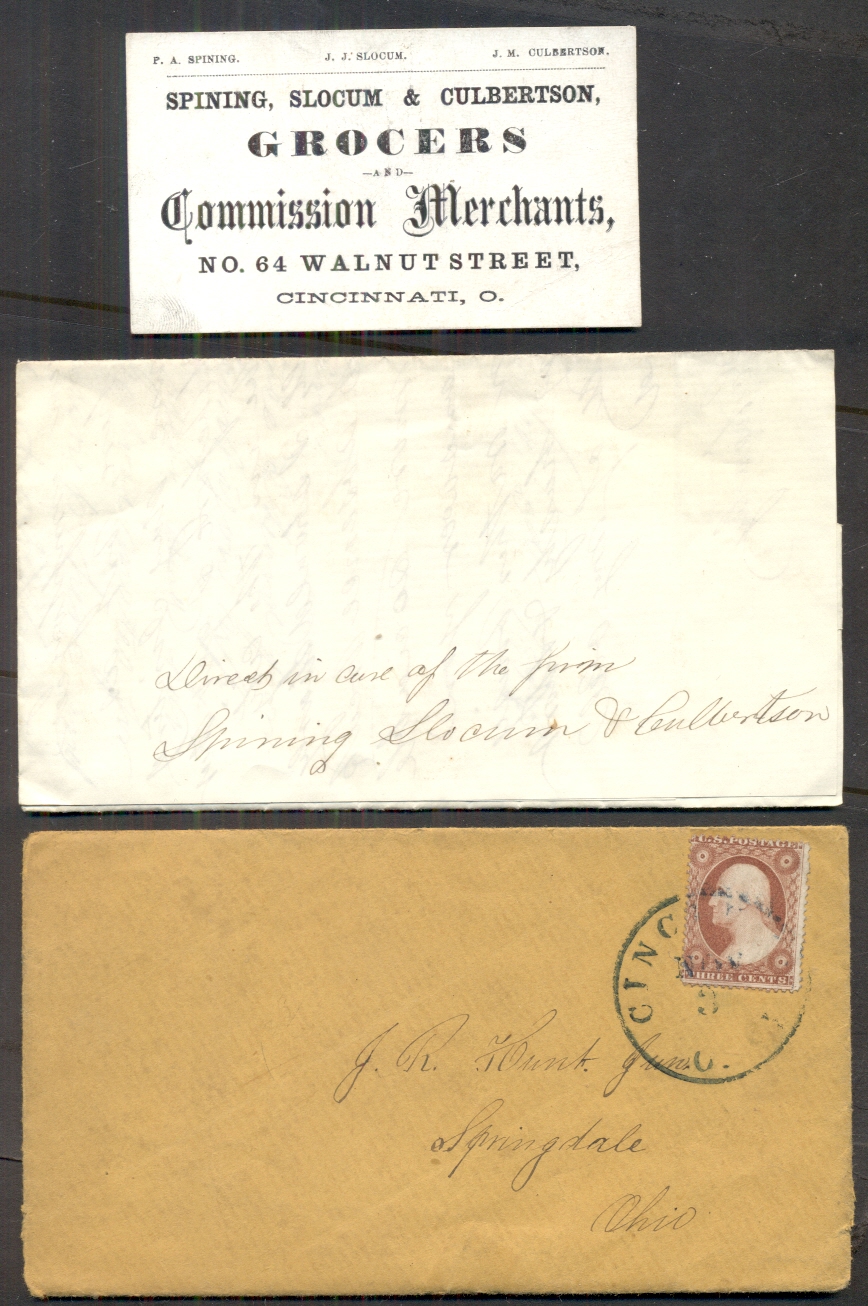 P. A. SPINING. J. J. SLOCUM. J. M. CULBERTSON.
SPINING, SLOCUM & CULBERTSON,
GROCERS
—AND—
Commission Merchants,
NO. 64 WALNUT STREET,
CINCINNATI, O.
Direct in care of the firm
Spining Slocum & Culbertson
U.S. POSTAGE
THREE CENTS
CINC
NOV
3
O.
J. R. Hunt. Jun.
Springdale
Ohio